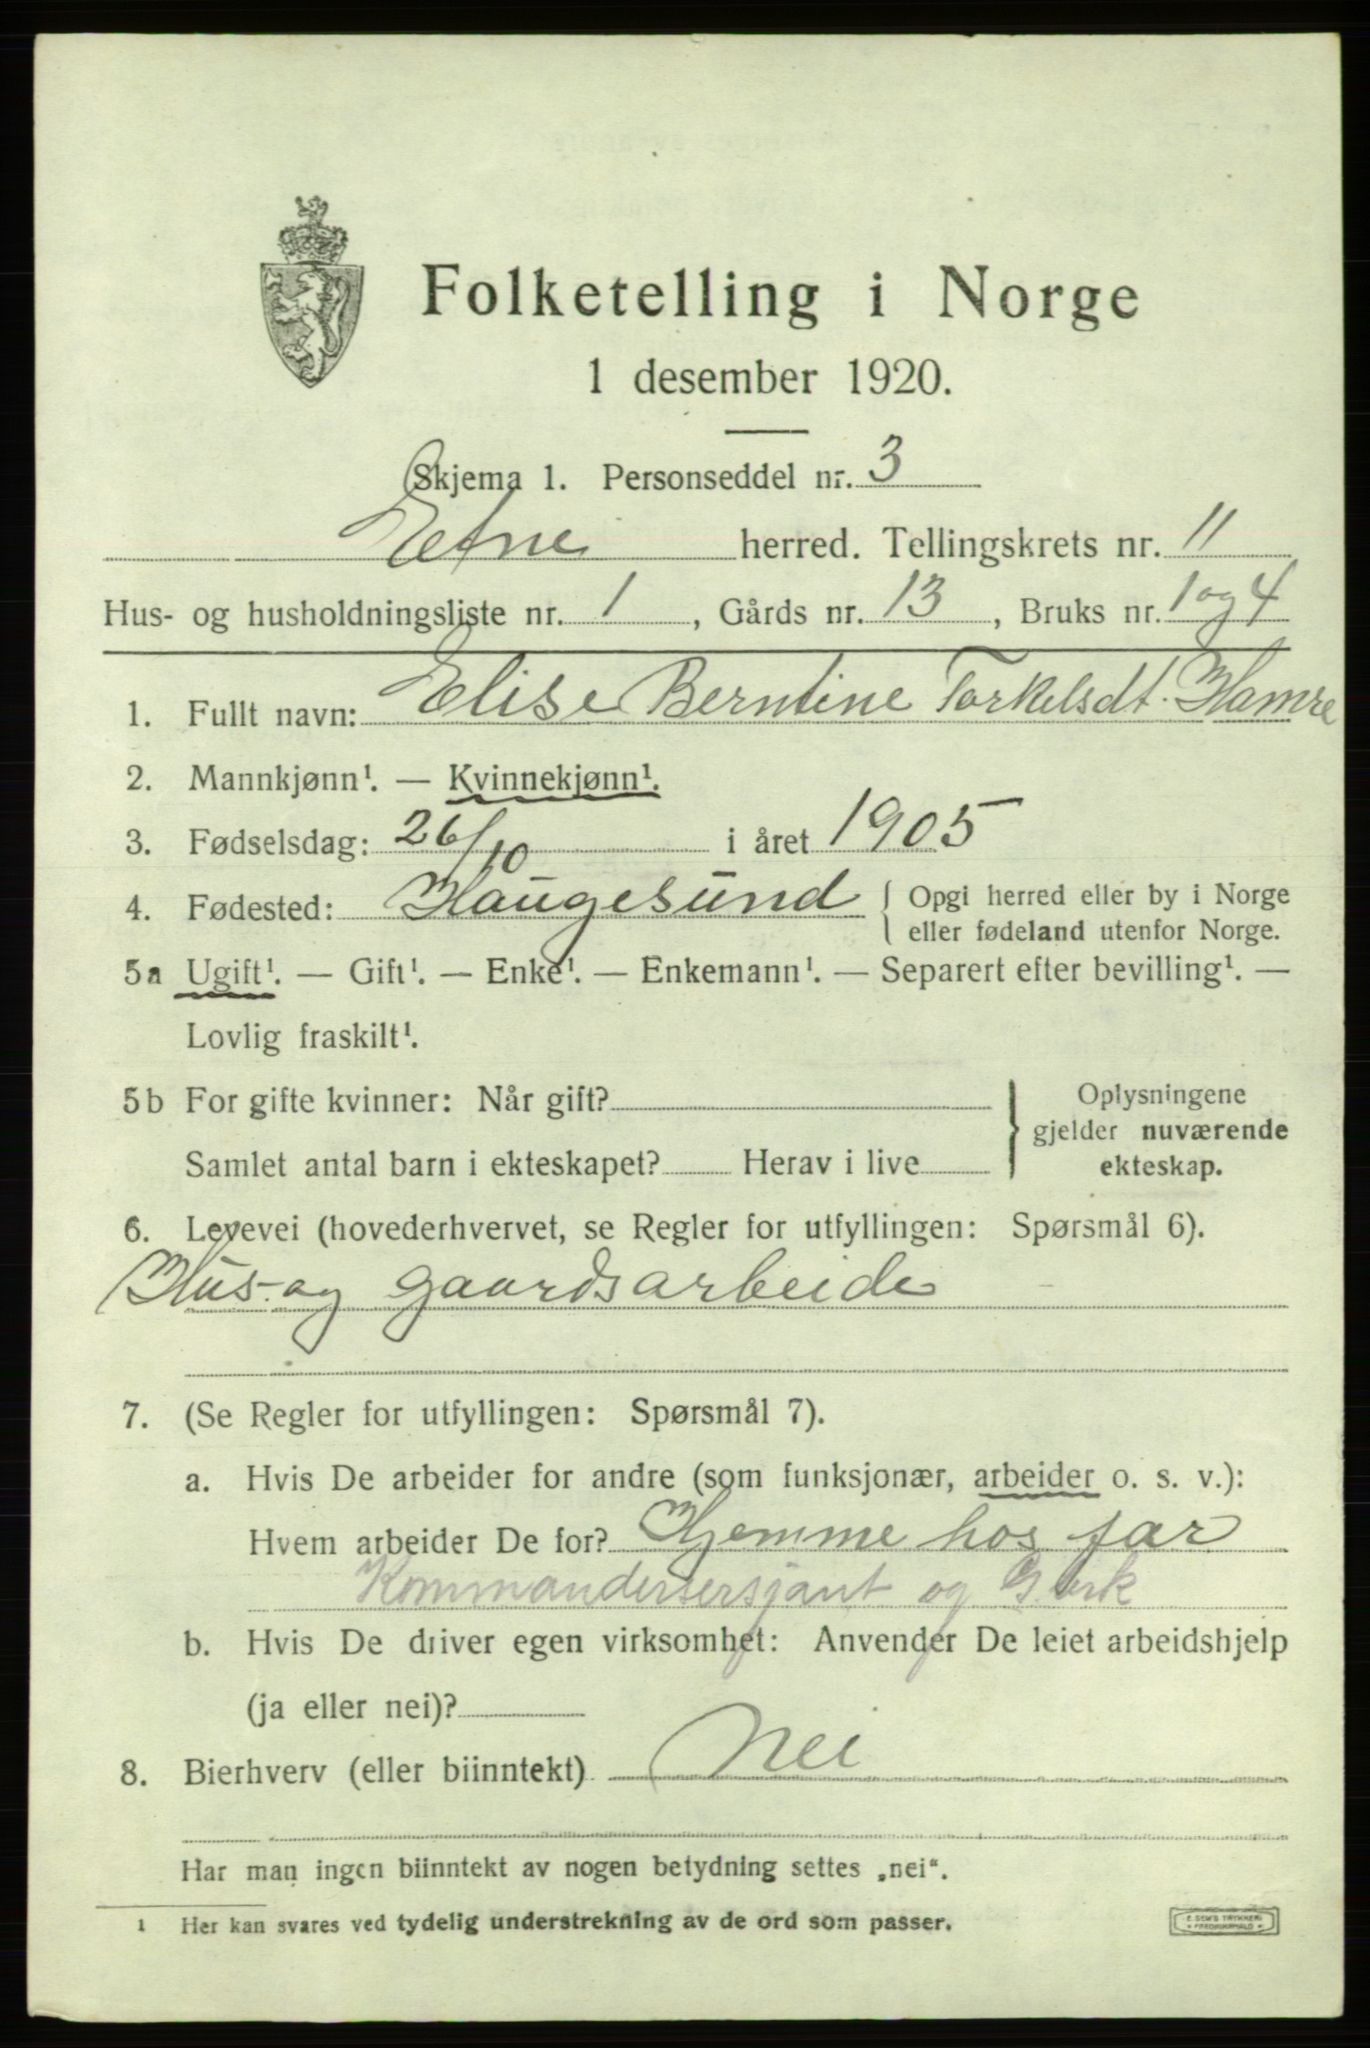 Folketelling i Norge
1 desember 1920.
Skjema 1. Personseddel nr. 3
Etne herred. Tellingskrets nr. 11
Hus- og husholdningsliste nr. 1, Gårds nr. 13, Bruks nr. 1 og 4
1. Fullt navn: Elise Berntine Torkelsdt. Hamre
2. Mannkjønn¹. — Kvinnekjønn¹.
3. Fødselsdag: 26/10 i året 1905
4. Fødested: Haugesund { Opgi herred eller by i Norge
eller fødeland utenfor Norge.
5a Ugift¹. — Gift¹. — Enke¹. — Enkemann¹. — Separert efter bevilling¹. —
Lovlig fraskilt¹.
5b For gifte kvinner: Når gift? } Oplysningene
gjelder nuværende
Samlet antal barn i ekteskapet? Herav i live
ekteskap.
6. Levevei (hovederhvervet, se Regler for utfyllingen: Spørsmål 6).
Hus- og gaardsarbeide
7. (Se Regler for utfyllingen: Spørsmål 7).
a. Hvis De arbeider for andre (som funksjonær, arbeider o. s. v.):
Hvem arbeider De for? Hjemme hos far
Kommandersersjant og G.brk
b. Hvis De driver egen virksomhet: Anvender De leiet arbeidshjelp
(ja eller nei)?
8. Bierhverv (eller biinntekt) Nei
Har man ingen biinntekt av nogen betydning settes „nei“.
1 Her kan svares ved tydelig understrekning av de ord som passer.
E. SEM'S TRYKKERI
FREDRIKSHALD